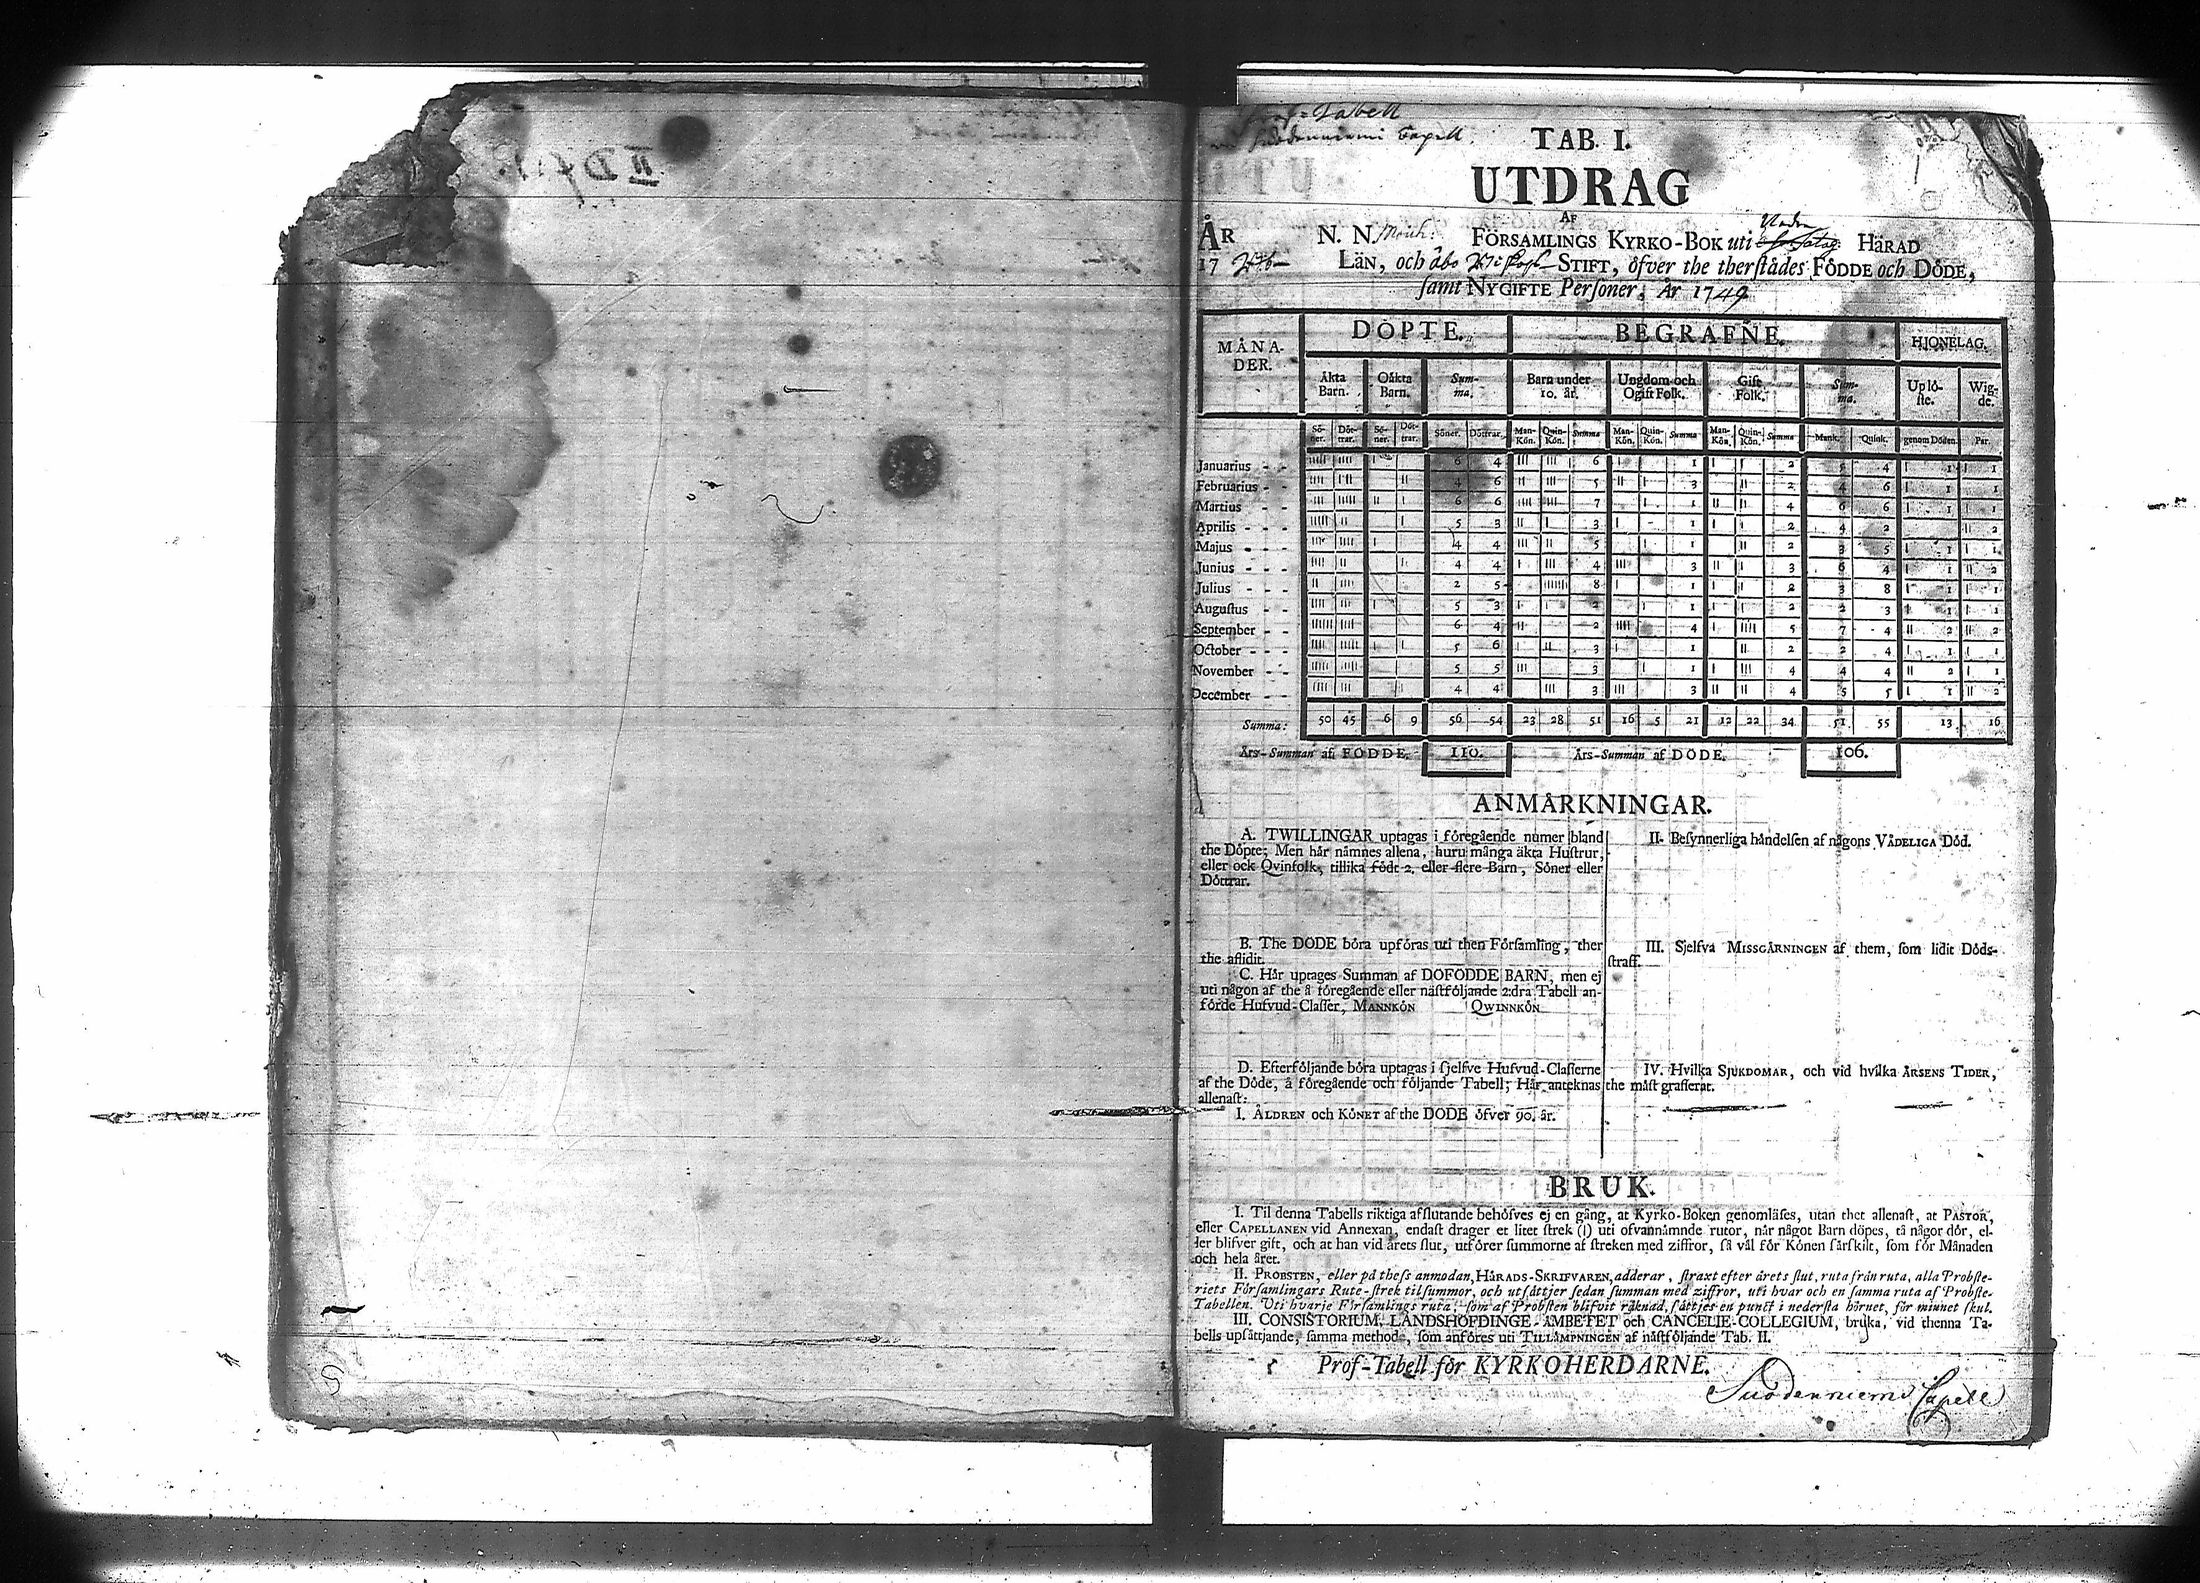 Tabell
Capell
TAB. I.
UTDRAG
AF
ÅR N. N. Mouh: FÖRSAMLINGS KYRKO-BOK uti HÄRAD
17 LÄN, och åbo STIFT, öfver the therstädes FÖDDE och DÖDE,
samt NYGIFTE Personer, År 1749
MÅNA-
DER.
DÖPTE. BEGRAFNE. HJONELAG.
Äkta Barn. Oäkta Barn. Sum-ma. Barn under 10. år. Ungdom och Ogift Folk. Gift Folk. Sum-ma. Uplö-ste. Wig-de.
Sö-ner. Döt-trar. Sö-ner. Döt-trar. Söner. Döttrar. Man-Kön. Quin-Kön. Summa Man-Kön. Quin-Kön. Summa Man-Kön. Quin-Kön. Summa Mank. Quink. genom Döden. Par.
Januarius - - 6 4 6 1 2 5 4 1 1
Februarius - - 4 6 5 3 2 4 6 1 1
Martius - - 6 6 7 1 4 6 6 1 1
Aprilis - - - 5 3 3 1 2 4 2 2
Majus - - - 4 4 5 1 2 3 5 1 1
Junius - - - 4 4 4 3 3 6 4 1 2
Julius - - - 2 5 8 1 2 3 8 1 1
Augustus - - 5 3 2 1 2 2 3 1 1
September - - 6 4 2 4 5 7 4 2 2
October - - - 5 6 3 1 2 2 4 1 1
November - - 5 5 3 1 4 4 4 2 1
December - - 4 4 3 3 4 5 5 1 2
Summa: 50 45 6 9 56 54 23 28 51 16 5 21 12 22 34 51 55 13 16
Års-Summan af FÖDDE. 110. Års-Summan af DÖDE. 106.
ANMÄRKNINGAR.
A. TWILLINGAR uptagas i föregående numer bland
the Döpte; Men här nämnes allena, huru många äkta Hustrur,
eller ock Qvinfolk, tillika född 2. eller flere Barn, Söner eller
Döttrar.
B. The DÖDE böra upföras uti then Församling, ther
the aflidit.
C. Här uptages Summan af DÖFÖDDE BARN, men ej
uti någon af the å föregående eller nästföljande 2:dra Tabell an-
förde Hufvud-Classer, MANNKÖN QWINNKÖN
D. Efterföljande böra uptagas i sjelfve Hufvud-Classerne
af the Döde, å föregående och följande Tabell; Här anteknas
allenast:
I. ÅLDREN och KÖNET af the DÖDE öfver 90. år.
II. Besynnerliga händelsen af någons VÅDELIGA Död.
III. Sjelfva MISSGÄRNINGEN af them, som lidit Döds-
straff.
IV. Hvilka SJUKDOMAR, och vid hvilka ÅRSENS TIDER,
the mäst grasserat.
BRUK.
I. Til denna Tabells riktiga afslutande behöfves ej en gång, at Kyrko-Boken genomläses, utan thet allenast, at PASTOR,
eller CAPELLANEN vid Annexan, endast drager et litet strek (|) uti ofvannämnde rutor, når något Barn döpes, tå någor dör, el-
ler blifver gift, och at han vid årets slut, utförer summorne af streken med ziffror, så väl för Könen särskilt, som för Månaden
och hela året.
II. PROBSTEN, eller på thess anmodan, HÄRADS-SKRIFVAREN, adderar, straxt efter årets slut, ruta från ruta, alla Probste-
riets Församlingars Rute-strek tilsummor, och utsättjer sedan summan med ziffror, uti hvar och en samma ruta af Probste-
Tabellen. Uti hvarje Församlings ruta, som af Probsten blifvit räknad, sättjes en punct i nedersta hörnet, för minnet skul.
III. CONSISTORIUM, LANDSHÖFDINGE-ÄMBETET och CANCELIE-COLLEGIUM, bruka, vid thenna Ta-
bells upsättjande, samma methode, som anföres uti TILLÄMPNINGEN af nästföljande Tab. II.
Prof-Tabell för KYRKOHERDARNE.
Suodenniemi Capell